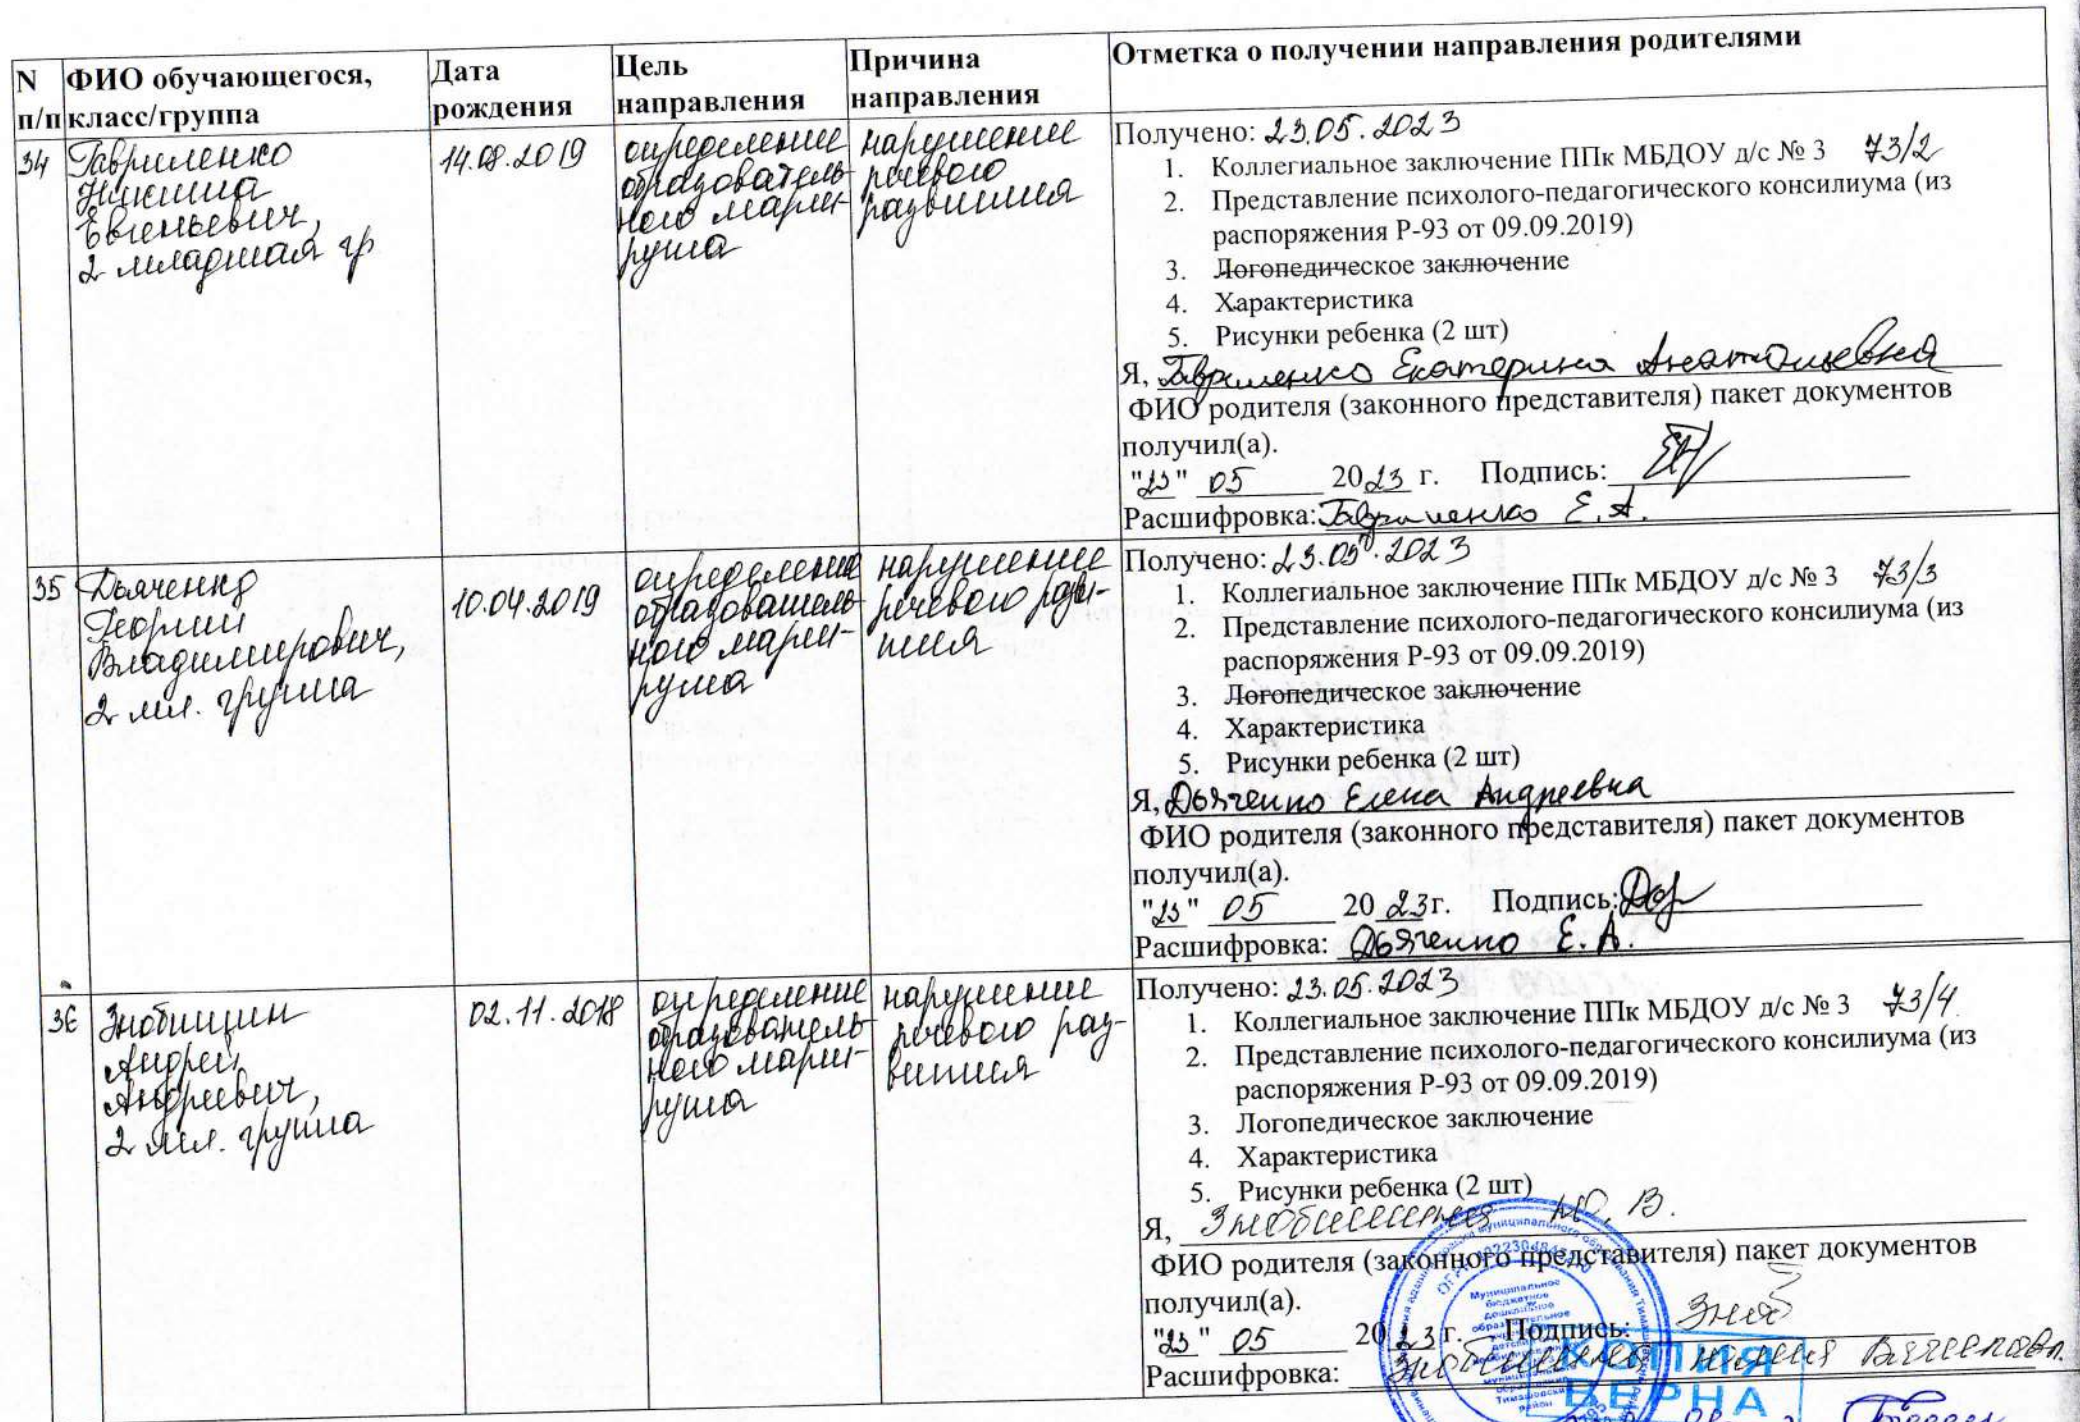 N п/п
ФИО обучающегося, класс/группа
Дата рождения
Цель направления
Причина направления
Отметка о получении направления родителями
34
Гавриленко
Никита
Евгеньевич,
2 младшая гр
14.08.2019
определение
образователь-
ного марш-
рута
нарушение
речевого
развития
Получено: 23.05.2023
1. Коллегиальное заключение ППк МБДОУ д/с № 3 73/2
2. Представление психолого-педагогического консилиума (из
распоряжения Р-93 от 09.09.2019)
3. Логопедическое заключение
4. Характеристика
5. Рисунки ребенка (2 шт)
Я, Гавриленко Екатерина Анатольевна
ФИО родителя (законного представителя) пакет документов
получил(а).
"23" 05 2023 г. Подпись:
Расшифровка: Гавриленко Е. А.
35
Дьяченко
Георгий
Владимирович,
2 мл. группа
10.04.2019
определение
образователь-
ного марш-
рута
нарушение
речевого разви-
тия
Получено: 23.05.2023
1. Коллегиальное заключение ППк МБДОУ д/с № 3 73/3
2. Представление психолого-педагогического консилиума (из
распоряжения Р-93 от 09.09.2019)
3. Логопедическое заключение
4. Характеристика
5. Рисунки ребенка (2 шт)
Я, Дьяченко Елена Андреевна
ФИО родителя (законного представителя) пакет документов
получил(а).
"23" 05 2023г. Подпись:
Расшифровка: Дьяченко Е. А.
36
Знобищин
Андрей
Андреевич,
2 мл. группа
02.11.2018
определение
образователь-
ного марш-
рута
нарушение
речевого раз-
вития
Получено: 23.05.2023
1. Коллегиальное заключение ППк МБДОУ д/с № 3 73/4
2. Представление психолого-педагогического консилиума (из
распоряжения Р-93 от 09.09.2019)
3. Логопедическое заключение
4. Характеристика
5. Рисунки ребенка (2 шт)
Я, Ю. В.
ФИО родителя (законного представителя) пакет документов
получил(а).
"23" 05 2023 г. Подпись:
Расшифровка:
КОПИЯ
ВЕРНА